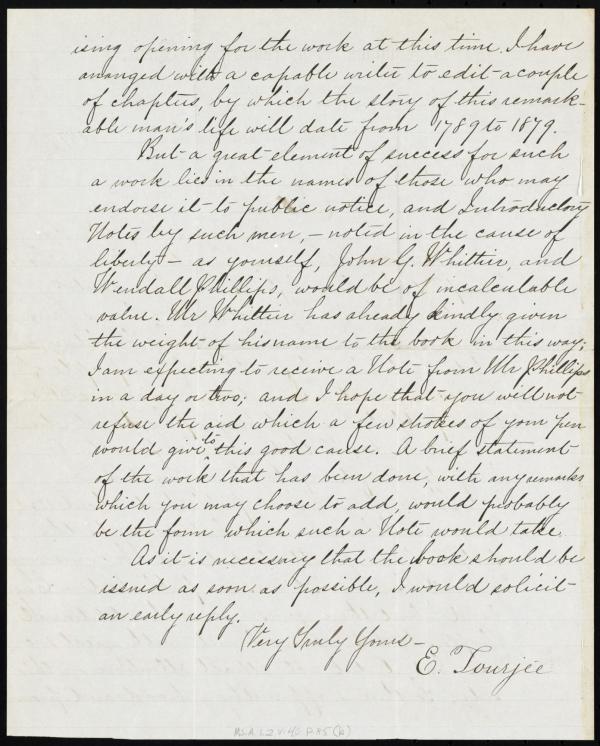 ising opening for the work at this time. I have
arranged with a capable writer to edit a couple
of chapters, by which the story of this remark-
able man's life will date from 1789 to 1879.
But a great element of success for such
a work lies in the names of those who may
endorse it to public notice, and Introductory
Notes by such men, - noted in the cause of
liberty - as yourself, John G. Whittier, and
Wendall Phillips, would be of incalculable
value. Mr Whittier has already kindly given
the weight of his name to the book in this way;
I am expecting to receive a Note from Mr Phillips
in a day or two; and I hope that you will not
refuse the aid which a few strokes of your pen
would give to this good cause. A brief statement
of the work that has been done, with any remarks
which you may choose to add, would probably
be the form which such a Note would take.
As it is necessary that the book should be
issued as soon as possible, I would solicit
an early reply.
Very Truly Yours -
E. Tourjée
Ms.A.1.2 v.40 p.85 (b)